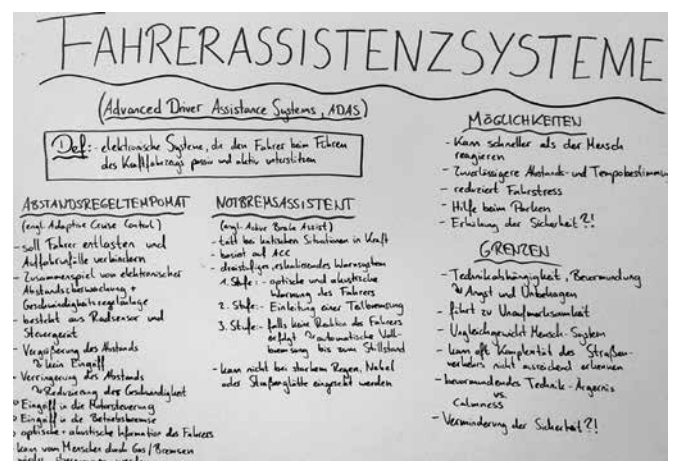 FAHRERASSISTENZSYSTEME
(Advanced Driver Assistance Systems, ADAS)
Def.: - elektronische Systeme, die den Fahrer beim Führen
des Kraftfahrzeugs passiv und aktiv unterstützen
ABSTANDSREGELTEMPOMAT
(engl. Adaptive Cruise Control)
- soll Fahrer entlasten und
Auffahrunfälle verhindern
- Zusammenspiel von elektronischer
Abstandsüberwachung +
Geschwindigkeitsregelanlage
- besteht aus Radsensor und
Steuergerät
- Vergrößerung des Abstands
↳ kein Eingriff
- Verringerung des Abstands
↳ Reduzierung der Geschwindigkeit
Eingriff in die Motorsteuerung
Eingriff in die Betriebsbremse
optische + akustische Information des Fahrers
kann vom Menschen durch Gas / Bremsen
NOTBREMSASSISTENT
(engl. Active Brake Assist)
- tritt bei kritischen Situationen in Kraft
- basiert auf ACC
- dreistufiges, eskalierendes Warnsystem
1. Stufe: - optische und akustische
Warnung des Fahrers
2. Stufe: - Einleitung einer Teilbremsung
3. Stufe: - falls keine Reaktion des Fahrers
erfolgt ↳ automatische Voll-
bremsung bis zum Stillstand
- kann nicht bei starkem Regen, Nebel
oder Straßenglätte eingesetzt werden
MÖGLICHKEITEN
- Kann schneller als der Mensch
reagieren
- Zuverlässigere Abstands- und Tempobestimmung
- reduziert Fahrstress
- Hilfe beim Parken
- Erhöhung der Sicherheit?!
GRENZEN
- Technikabhängigkeit, Bevormundung
↳ Angst und Unbehagen
- führt zu Unaufmerksamkeit
- Ungleichgewicht Mensch-System
- kann oft Komplexität des Straßen-
verkehrs nicht ausreichend erkennen
- bevormundendes Technik-Ärgernis
vs.
Calmness
- Verminderung der Sicherheit?!